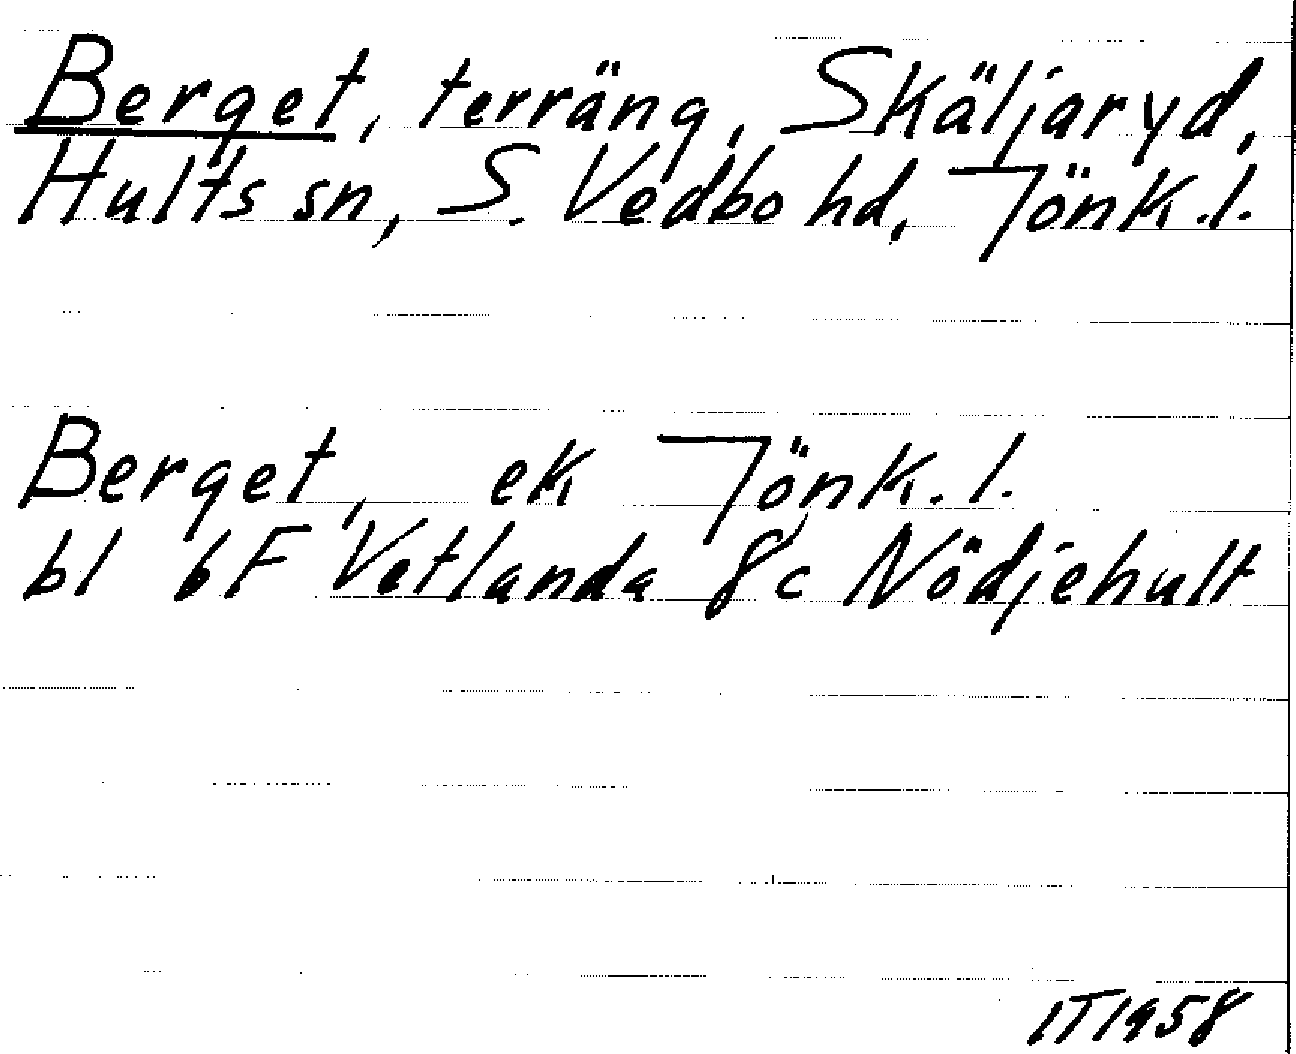 Berget, terräng, Skäljaryd,
Hults sn, S. Vedbo hd, Jönk.l.
Berget, ek Jönk.l.
bl 6F Vetlanda 8c Nödjehult
IT1958